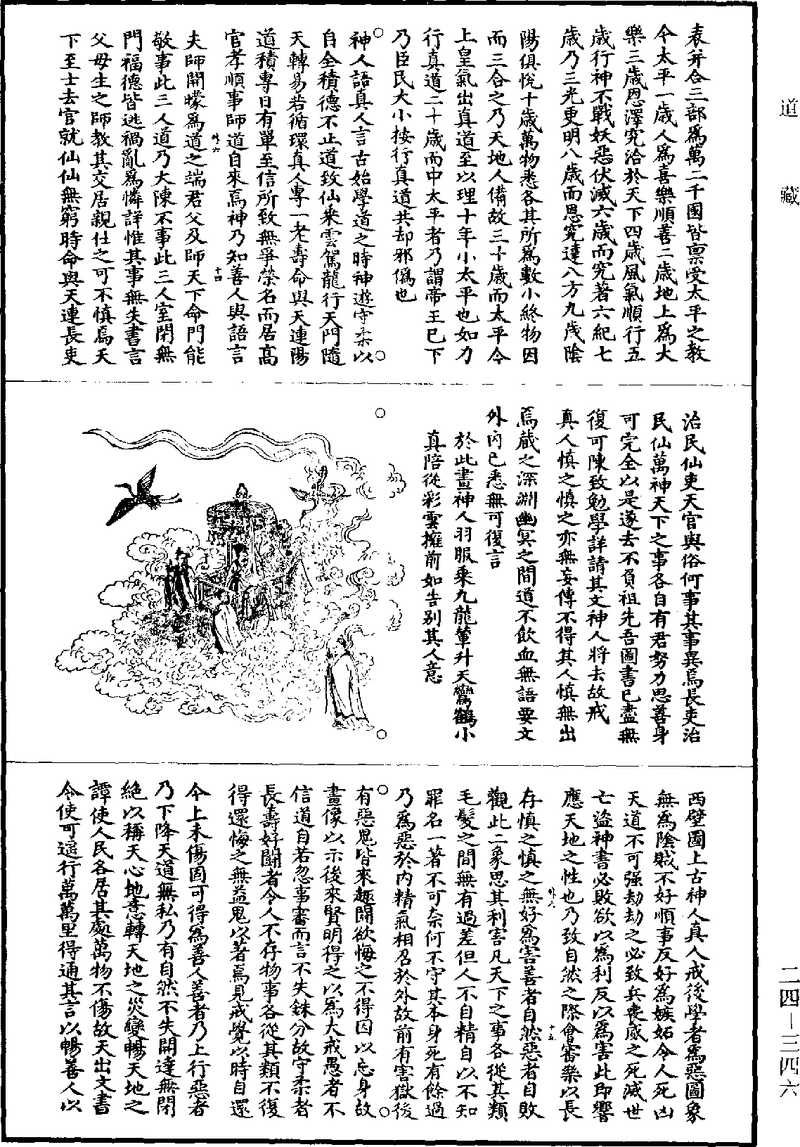 道藏
表并合三部爲萬二千國皆禀受太平之教
今太平一歲人爲喜樂順善二歲地上爲大
樂三歲恩澤究洽於天下四歲風氣順行五
歲行神不戰妖惡伏滅六歲而究著六紀七
歲乃三光更明八歲而恩究達八方九歲陰
陽俱悅十歲萬物悉各其所爲數小終物因
而三合之乃天地人備故三十歲而太平今
上皇氣出真道至以理十年小太平也如力
行真道二十歲而中太平者乃謂帝王已下
乃臣民大小按行真道共却邪僞也
神人語真人言古始學道之時神遊守柔以
自全積德不止道致仙乘雲駕龍行天門隨
天轉易若循環真人專一老壽命與天連陽
道積專日有單至信所致無爭榮名而居高
官孝順事師道自來焉神乃知善人與語言
外六
十四
夫師開矇爲道之端君父及師天下命門能
敬事此三人道乃大陳不事此三人室閉無
門福德皆逃禍亂爲憐詳惟其事無失書言
父母生之師教其交居親仕之可不慎焉天
下至士去官就仙仙無窮時命與天連長吏
治民仙吏天官與俗何事其事異焉長吏治
民仙萬神天下之事各自有君努力思善身
可完全以是遂去不負祖先吾圖書已盡無
復可陳致勉學詳請其文神人將去故戒
真人慎之慎之亦無妄傳不得其人慎無出
焉藏之深淵幽冥之間道不飲血無語要文
外內已悉無可復言
於此畫神人羽服乘九龍輦升天鸞鶴小
真陪從彩雲擁前如告別其人意
西壁圖上古神人真人戒後學者爲惡圖象
無爲陰賊不好順事反好爲嫉妬令人死凶
天道不可強劫劫之必致兵喪威之死滅世
亡盜神書必敗欲以爲利反以爲害此即響
應天地之性也乃致自然之際會審樂以長
外六
十五
存慎之慎之無好爲害善者自然惡者自敗
觀此二象思其利害凡天下之事各從其類
毛髮之間無有過差但人不自精自以不知
罪名一著不可奈何不守其本身死有餘過
乃爲惡於內精氣相召於外故前有害獄後
有惡鬼皆來趣鬭欲悔之不得因以亡身故
畫像以示後來賢明得之以爲大戒愚者不
信道自若忽事審而言不失銖分故守柔者
長壽好鬭者令人不存物事各從其類不復
得還悔之無益鬼以著焉見戒覺以時自還
今上未傷因可得爲善人善者乃上行惡者
乃下降天道無私乃有自然不失開達無閉
絕以稱天心地意轉天地之災變暢天地之
譚使人民各居其處萬物不傷故天出文書
令使可遥行萬萬里得通其言以暢善人以
二四－三四六